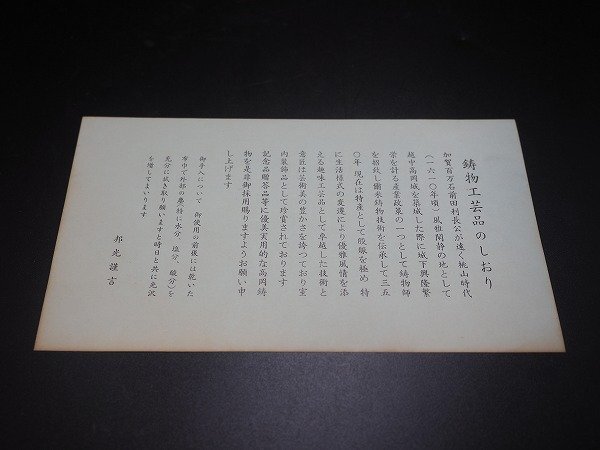 鋳物工芸品のしおり
加賀百万石前田利長公が遠く桃山時代
(一六一〇年頃)風雅閑静の地として
越中高岡城を築城した際に城下興隆繁
栄を計る産業政策の一つとして鋳物師
を招致し爾来鋳物技術を伝承して三五
〇年 現在は特産として殷賑を極め 特
に生活様式の変遷により優雅風情を添
える趣味工芸品として卓越した技術と
意匠は芸術美の豊かさを持つており室
内装飾品として珍賞されております
記念品贈答品等に優美実用的な高岡鋳
物を是非御採用賜りますようお願い申
し上げます
御手入について 御使用の前後には乾いた
布巾で外部の塵(特に水分、塩分、酸分)を
充分に拭き取り願いますと時日と共に光沢
を増してまいります
邦光謹言